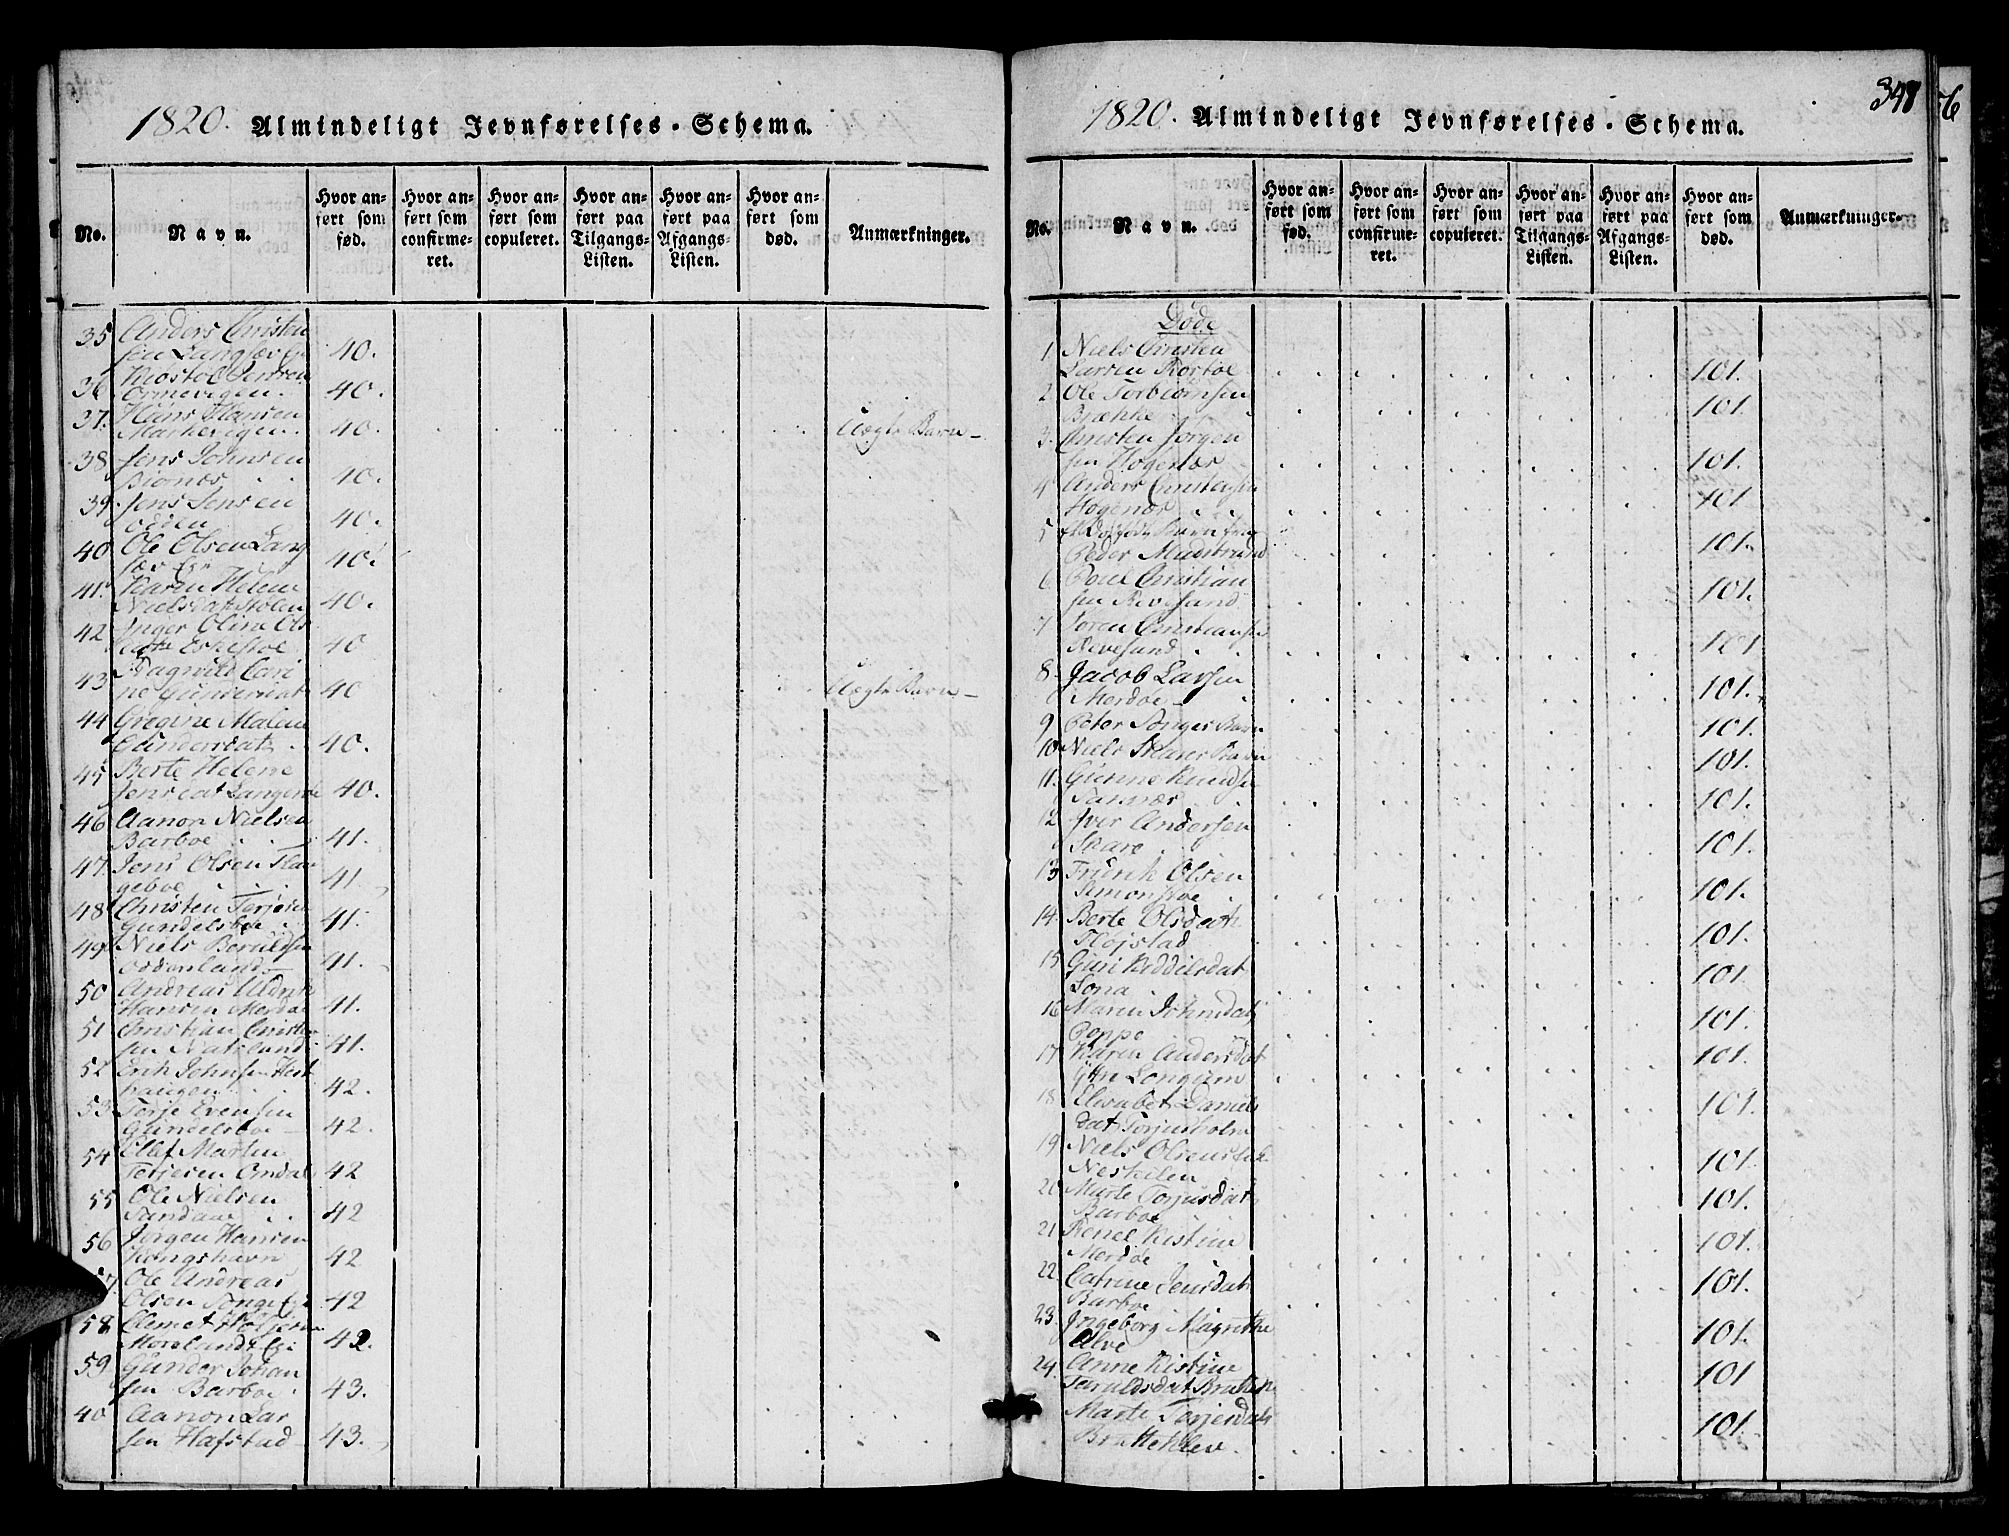 1820. Almindeligt Jevnførelses-Schema.
No. Navn. Hvor anført som fød. Hvor anført som confirmeret. Hvor anført som copuleret. Hvor anført paa Tilgangs-Listen. Hvor anført paa Afgangs-Listen. Hvor anført som død. Anmærkninger.
35 Anders Christen
sen 40.
36
40.
37. Hans Hansen
Markevigen. 40. Uægte Barn
38 Jens Johnsen
40.
39 Jens Jensen
Odden 40.
40 Ole Olsen Lang
sæv 40.
41. Karen Helene
Nielsdat. Stølen 40.
42 Inger Oline Ols
dat. 40
43 Ragnild Cari
ne Gundersdat 40 Uægte Barn
44 Gregine Malene
Gundersdat. 40.
45 Berte Helene
Jensdat Langenæs 40.
46 Aanon Nielsen
Barboe 41.
47. Jens Olsen Hau
geboe 41
48 Christen Terjesen
Gundelsboe 41.
49 Niels
41.
50 Andreas
Hansen Merdøe 41.
51 Christian Christen
sen Natvland 41.
52 Erik Johnsen Hest
haugen 42.
53 Terje Evensen
Gundelsboe 42.
54 Ellef Martin
Terjesen Omdal 42
55 Ole Nielsen
Sandaae 42
56 Jørgen Hansen
Kongshavn 42
57. Ole Andreas
Olsen Songe 42
58 Clemet
Moreland 42.
59 Gunder Johan
sen Barboe 43.
40 Aanon Lar
sen Hafstad 43.
1820. Almindeligt Jevnførelses-Schema.
347
56
No. Navn. Hvor anført som fød. Hvor anført som confirmeret. Hvor anført som copuleret. Hvor anført paa Tilgangs-Listen. Hvor anført paa Afgangs-Listen. Hvor anført som død. Anmærkninger.
Døde
1. Niels Christen
Larsen 101.
2 Ole Torbiørnsen
Brække 101.
3. Christen Jørgen
sen Høgenæs 101.
4 Anders Christensen
Høgenæs 101.
5 Barn
Peder 101.
6 Poul Christian
sen Revesand 101.
7 Søren Christiansen
Revesand 101
8. Jacob Larsen
Merdøe 101.
9 Peter Songes Barn 101.
10 Niels Skares Barn 101.
11. Gunne Knudsen
101.
12 Iver Andersen
Skare 101.
13 Fridrik Olsen
Simonsboe 101.
14. Berte Olsdat.
Fløjstad 101.
15 Guri Keddilsdat
Lona 101.
16 Maren Johnsdat
101.
17 Karen Andersdat
Yttre Longum 101.
18 Elisabet Daniels
dat. Torjusholm 101.
19 Niels
Neskilen 101.
20 Marte Torjusdat
Barboe 101.
21 Kistine
Merdøe 101.
22 Catrine Jensdat
Barboe 101.
23. Ingeborg Magrethe
Alve 101.
24. Anne Kistine
Taraldsdat Brattek 101
Marte Torjersdat
Bratteklev. 101.